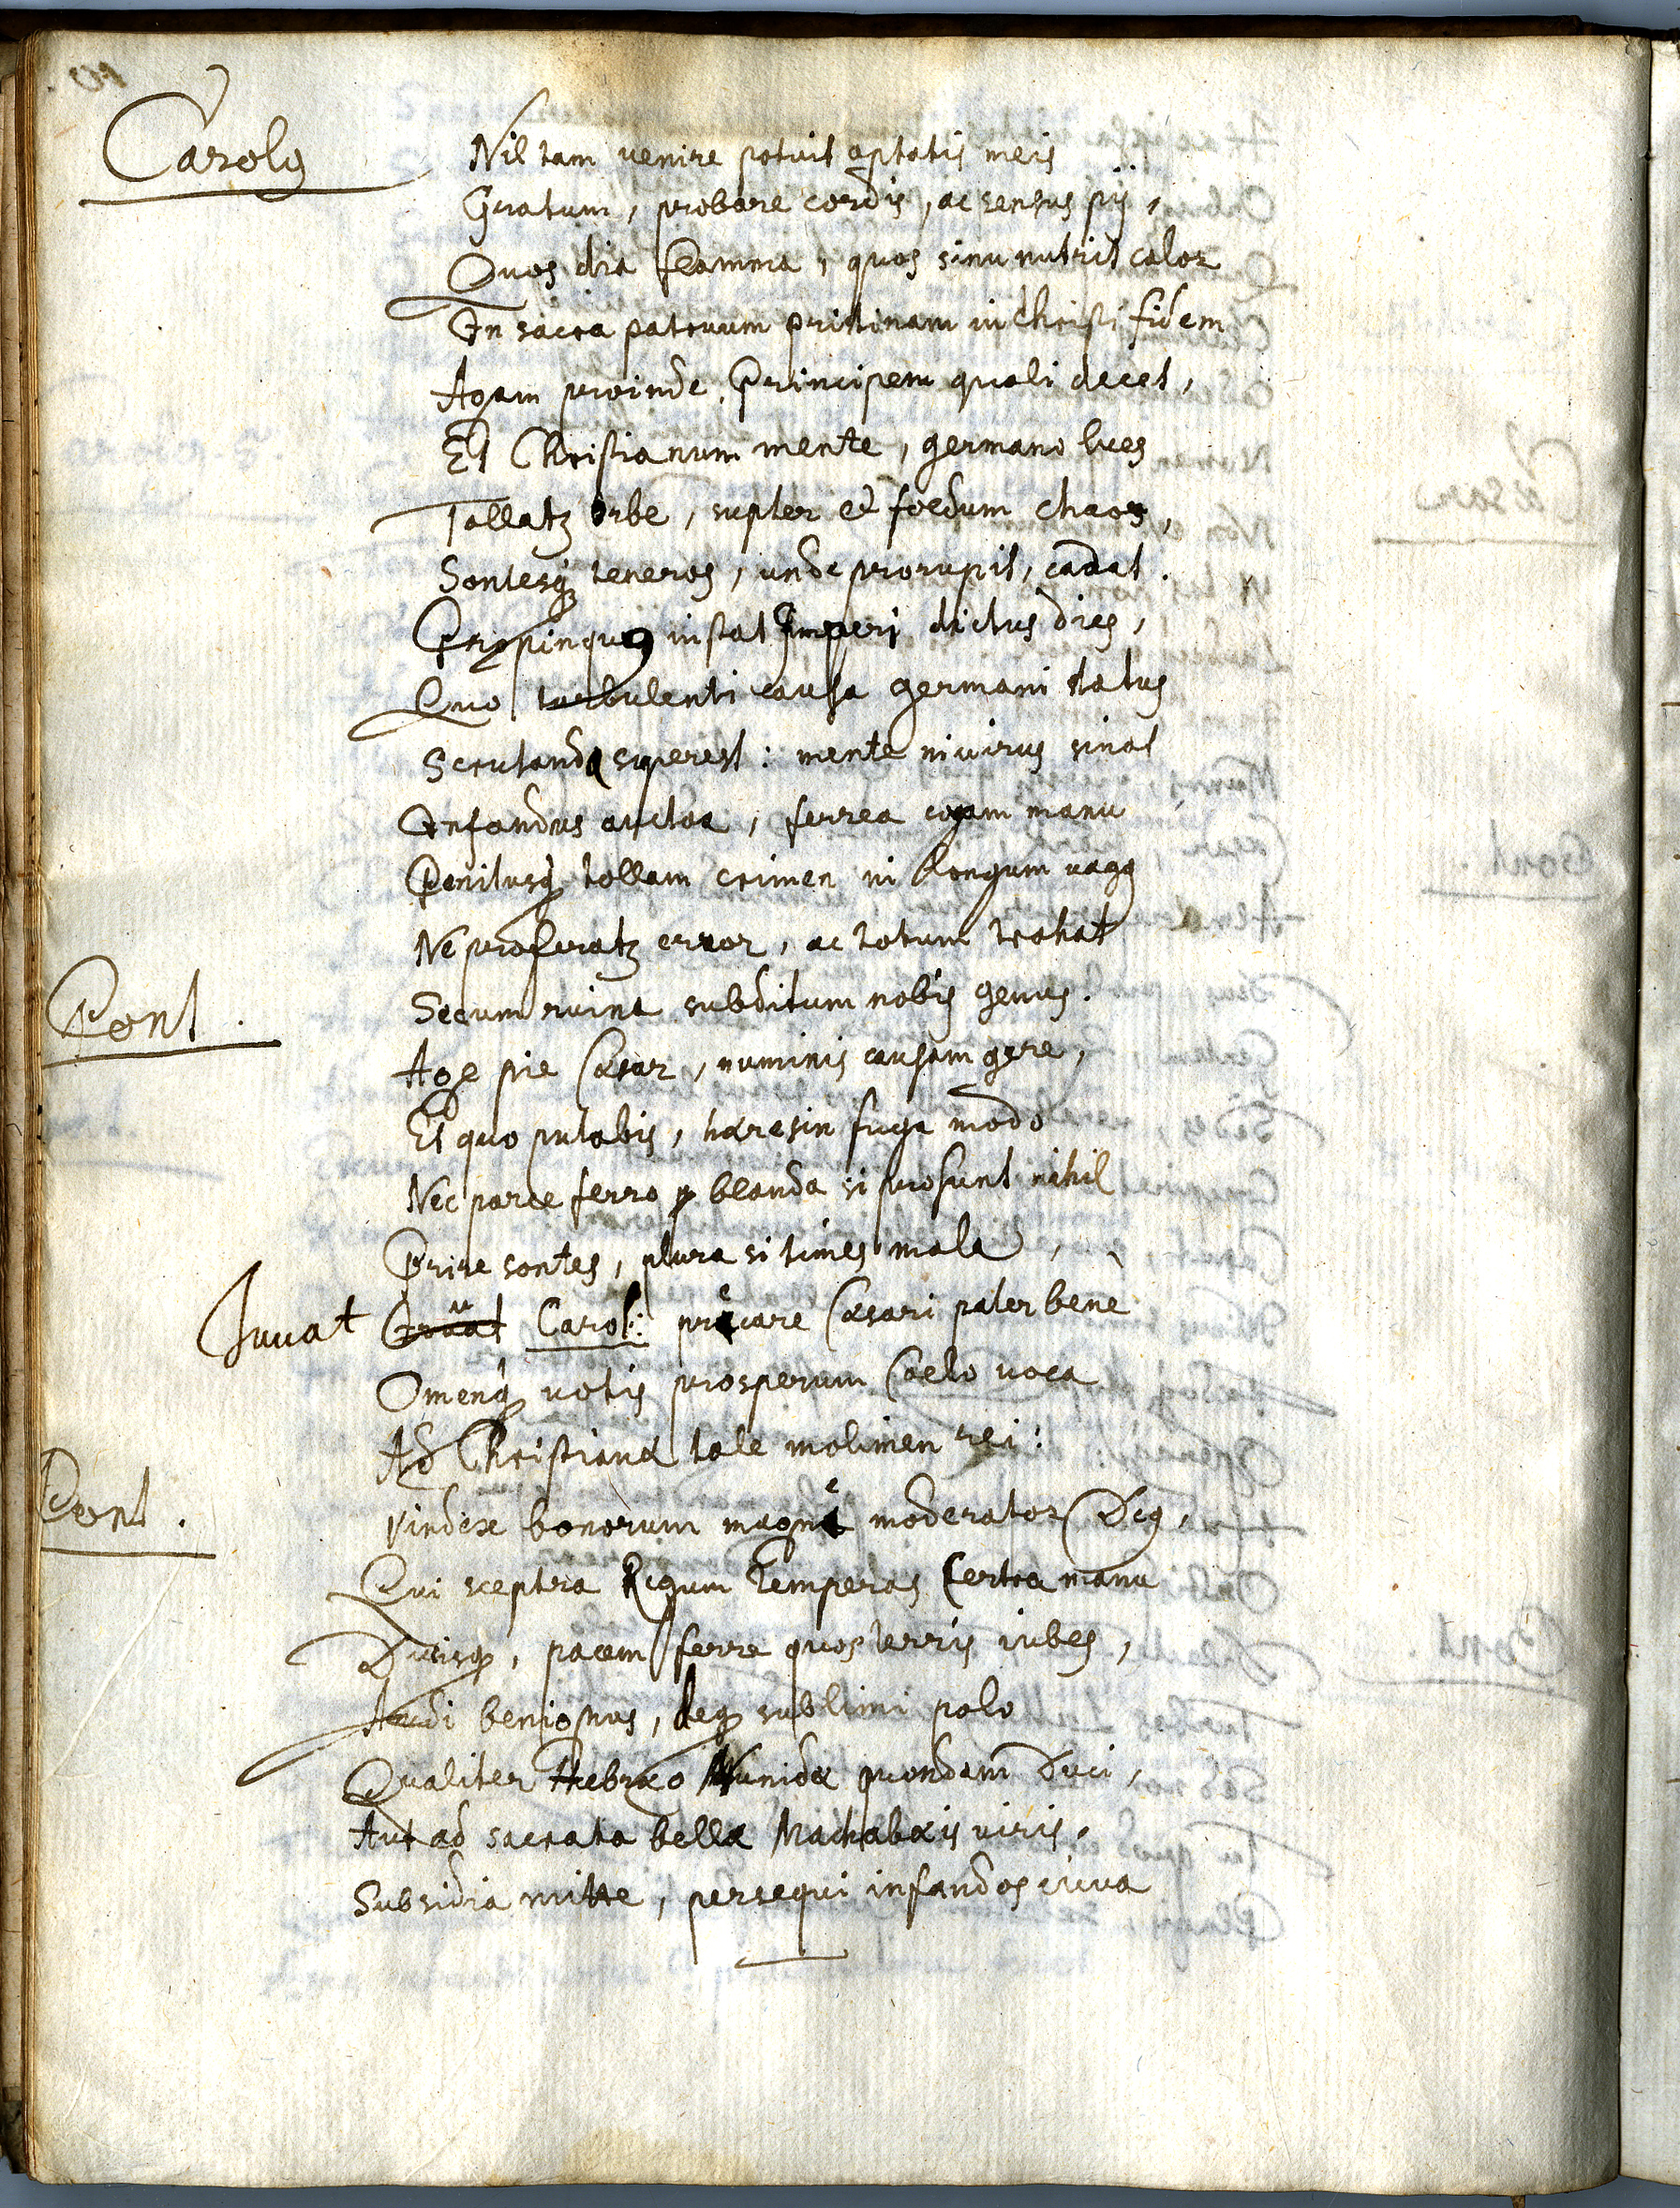 Carolꝰ
Nil tam venire potuit optatis meis
Gratum, probare cordis, ac sensus pij,
Quos dia flamma, quos sinu nutrit calor
In sacra patruum pristinam in Christi fidem
Agam proinde, Principem quali decet,
Et Christianum mente, germano lues
Tollatꝫ orbe, supter et foedum chaos,
Sontesqꝫ teneros, unde prorupit, cadat.
Propinquꝰ instat Imperj dictus dies,
Quo turbulenti causa germani status
Scrutanda superest: mente ni virus sinat
Infandus auctor, ferrea cogam manu
Penitusqꝫ tollam crimen in longum vagꝰ
Ne proferatꝫ error, ac totum trahat
Secum ruina subditum nobis genus.
Pont.
Age pie Cæsar, numinis causam gere,
Et quo putabis, hæresin fuga modo
Nec parce ferro blanda si prosunt nihil
Prire sontes, plura si times mala,
Juuat Iuuat Carol: precare Cæsari pater bene
Omenqꝫ votis prosperum Caelo voca
Ad Christianæ tale molimen rei:
Pont.
Vindex bonorum magne moderator Deꝰ,
Qui sceptra Regum temperas certa manu
Ducisqꝫ, pacem ferre quos terris iubes,
Audi benignus, deqꝫ sublimi polo
Qualiter Hebræo Nunidæ quondam Duci,
Aut ad sacrata bella Machabæis viris,
Subsidia mitte, persequi infandos iuva